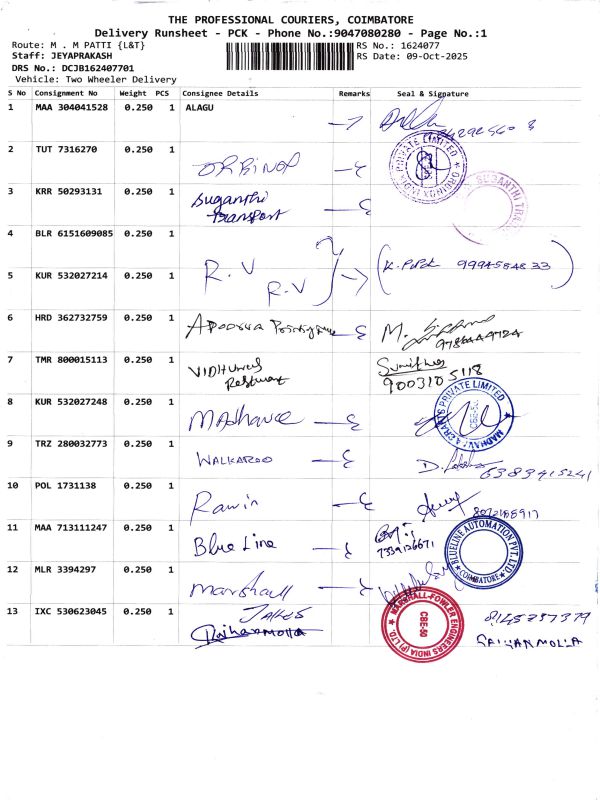 THE PROFESSIONAL COURIERS, COIMBATORE
Delivery Runsheet - PCK - Phone No.:9047080280 - Page No.:1
Route: M . M PATTI {L&T}
RS No.: 1624077
Staff: JEYAPRAKASH
RS Date: 09-Oct-2025
DRS No.: DCJB162407701
Vehicle: Two Wheeler Delivery
S No Consignment No Weight PCS Consignee Details Remarks Seal & Signature
1 MAA 304041528 0.250 1 ALAGU
2 TUT 7316270 0.250 1 ORBINOX
PRIVATE LIMITED
3 KRR 50293131 0.250 1 Suganthi
Transport
4 BLR 6151609085 0.250 1 R.V
5 KUR 532027214 0.250 1 R.V
9994584833
6 HRD 362732759 0.250 1 Apoorva
M.
7 TMR 800015113 0.250 1
9003105118
8 KUR 532027248 0.250 1 Madhavee
PRIVATE LIMITED
9 TRZ 280032773 0.250 1 WALKAROO
D.
6383915241
10 POL 1731138 0.250 1
11 MAA 713111247 0.250 1 Blue Line
7339126671
BLUELINE AUTOMATION PVT. LTD
COIMBATORE
12 MLR 3394297 0.250 1 Marshall
MARSHALL-FOWLER ENGINEERS INDIA (P) LTD.
CBE-50
13 IXC 530623045 0.250 1 JAKES
Raihanmolla
8145787379
RAIHANMOLLA